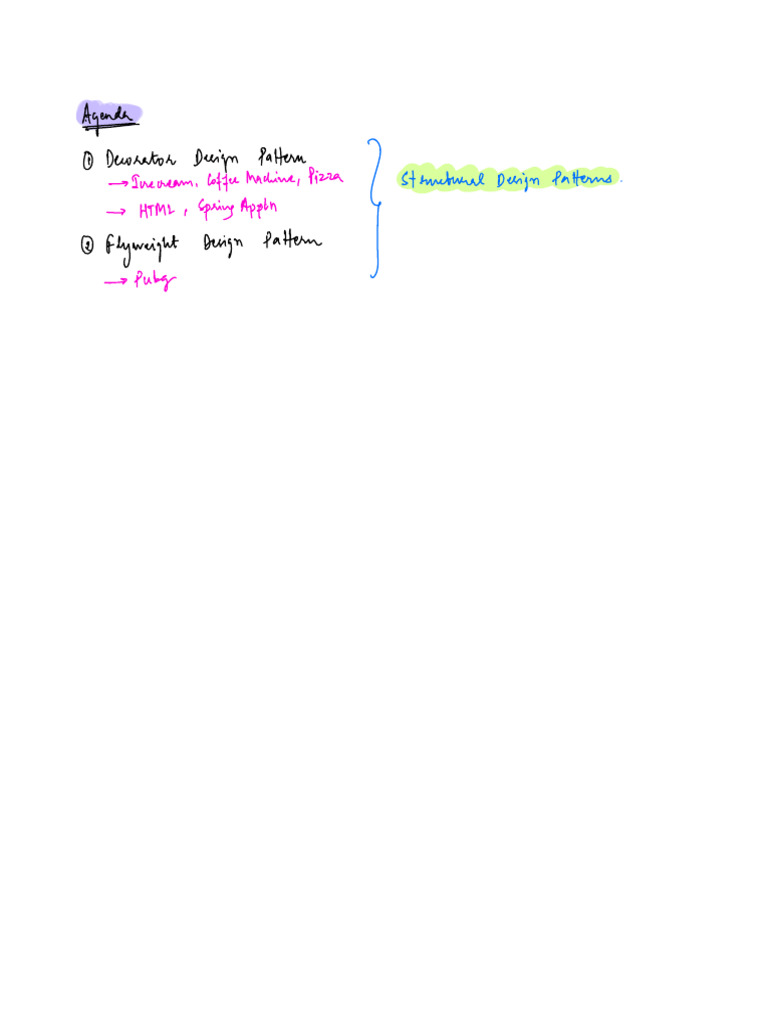 Agenda
① Decorator Design Pattern
→ Icecream, Coffee Machine, Pizza
→ HTML, Spring Appln
② Flyweight Design Pattern
→ Pubg
Structural Design Patterns.